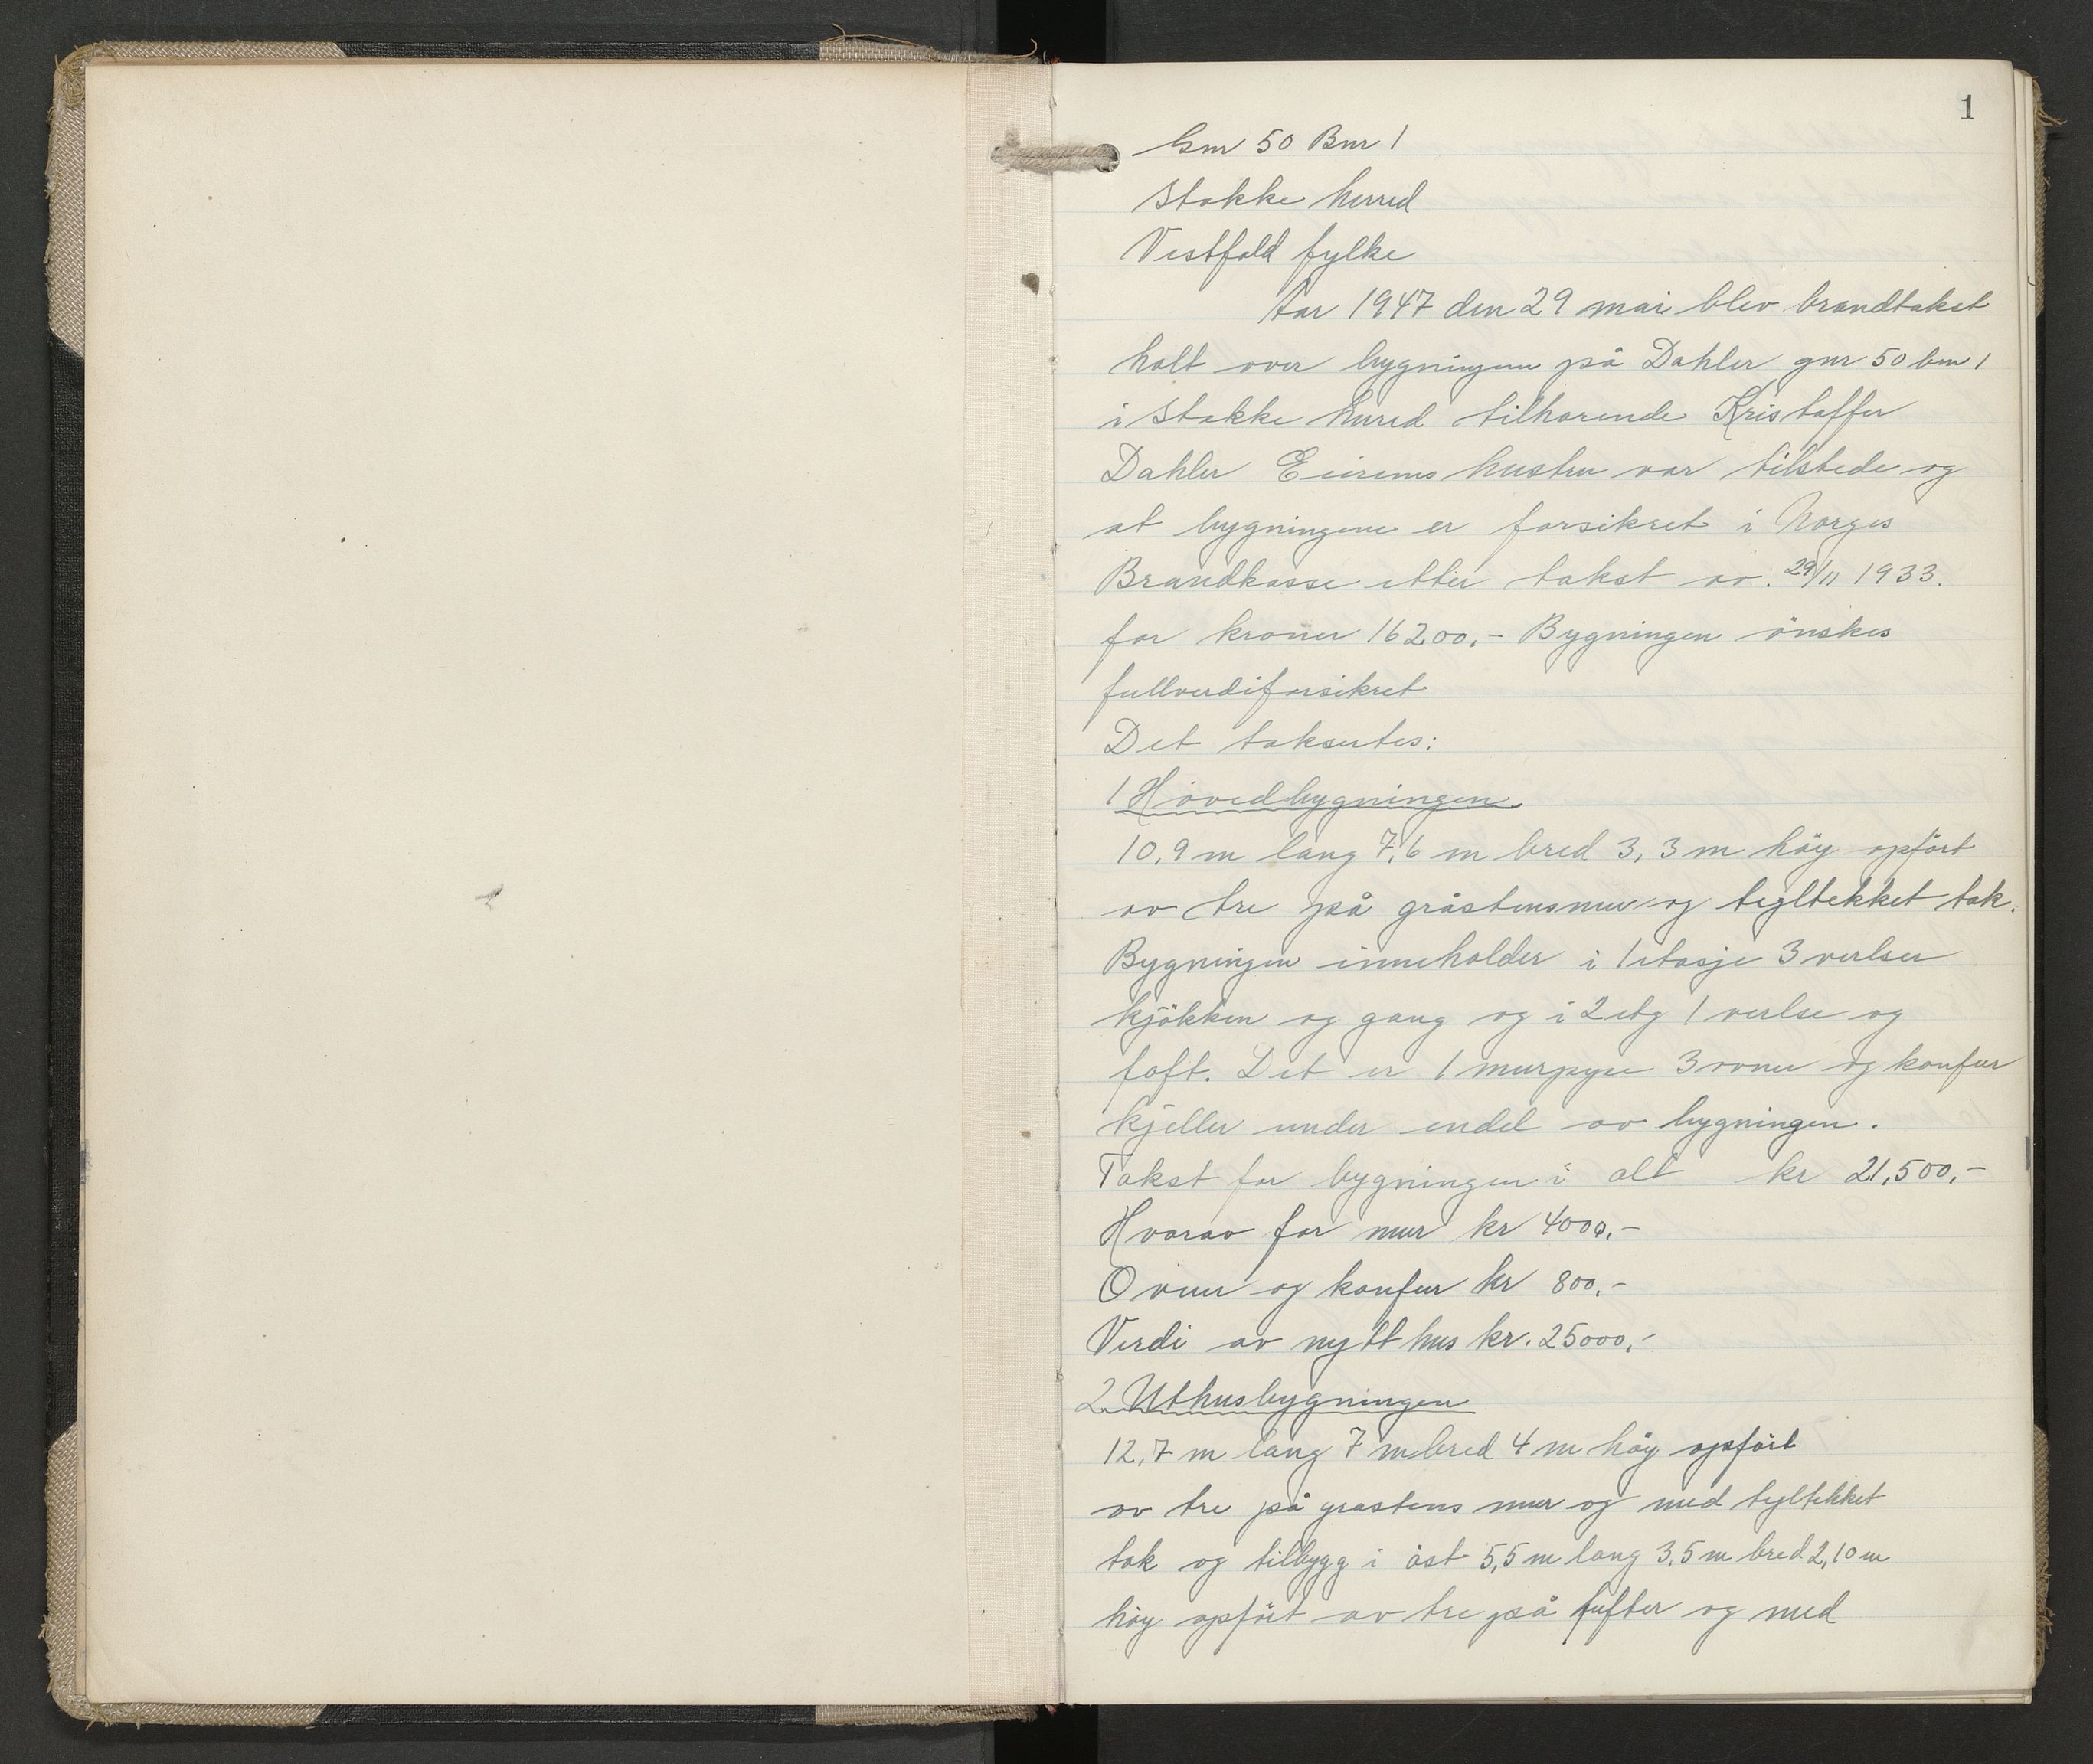 1
Gnr 50 Bnr 1
Stokke herred
Vestfold fylke
Aar 1947 den 29 mai blev brandtakst
holt over bygningene på Dahler gnr 50 bnr 1
i Stokke herred tilhorende Kristoffer
Dahler Eierens hustru var tilstede og
at bygningene er forsikret i Norges
Brandkasse etter takst av. 29/11 1933.
for kroner 16200,- Bygningen önskes
fullverdiforsikret
Det taksertes:
1 Hovedbygningen
10,9 m lang 7,6 m bred 3,3 m höy opfört
av tre på gråstensmur og tegltekket tak.
Bygningen inneholder i 1 etasje 3 verlser
kjökken og gang og i 2 etg 1 verlse og
loft. Det er 1 murpipe 3 ovner og komfur
kjeller under endel av bygningen.
Takst for bygningen i alt kr 21,500,-
Hvorav for mur kr 4000,-
Ovner og komfur kr 800,-
Verdi av nytt hus kr. 25000,-
2. Uthusbygningen
12,7 m lang 7 m bred 4 m höy opfört
av tre på grastens mur og med tegltekket
tak og tilbygg i öst 5,5 m lang 3,5 m bred 2,10 m
höy opfört av tre på tufter og med